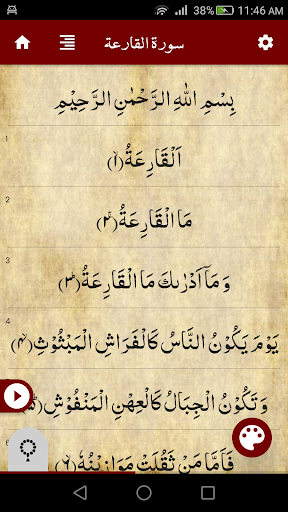 38% 11:46 AM
سورة القارعة
بِسْمِ اللهِ الرَّحْمٰنِ الرَّحِيْمِ
1
اَلْقَارِعَةُ ﴿۱﴾
2
مَا الْقَارِعَةُ ﴿۲﴾
3
وَمَاۤ اَدْرٰىكَ مَا الْقَارِعَةُ ﴿۳﴾
4
يَوْمَ يَكُوْنُ النَّاسُ كَالْفَرَاشِ الْمَبْثُوْثِ ﴿۴﴾
وَتَكُوْنُ الْجِبَالُ كَالْعِهْنِ الْمَنْفُوْشِ ﴿۵﴾
6
فَاَمَّا مَنْ ثَقُلَتْ مَوَازِيْنُهٗ ﴿۶﴾